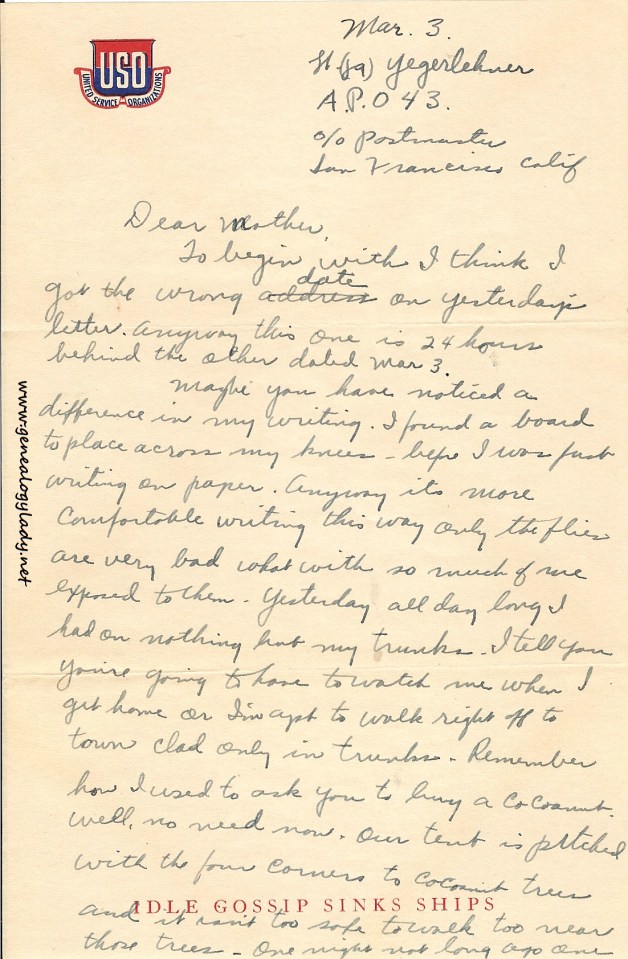 USO
UNITED SERVICE ORGANIZATIONS
Mar. 3.
Lt (jg) Yegerlehner
A.P.O 43.
c/o Postmaster
San Francisco Calif
Dear Mother,
To begin with I think I
got the wrong address date on yesterday's
letter. Anyway this one is 24 hours
behind the other dated Mar 3.
Maybe you have noticed a
difference in my writing. I found a board
to place across my knees - before I was just
writing on paper. Anyway its more
comfortable writing this way only the flies
are very bad what with so much of me
exposed to them - Yesterday all day long I
had on nothing but my trunks - I tell you
you're going to have to watch me when I
get home or I'm apt to walk right off to
town clad only in trunks - Remember
how I used to ask you to buy a cocoanut.
Well, no need now. Our tent is pitched
with the four corners to cocoanut trees
and it isn't too safe to walk too near
those trees - One night not long ago one
IDLE GOSSIP SINKS SHIPS
www.genealogylady.net